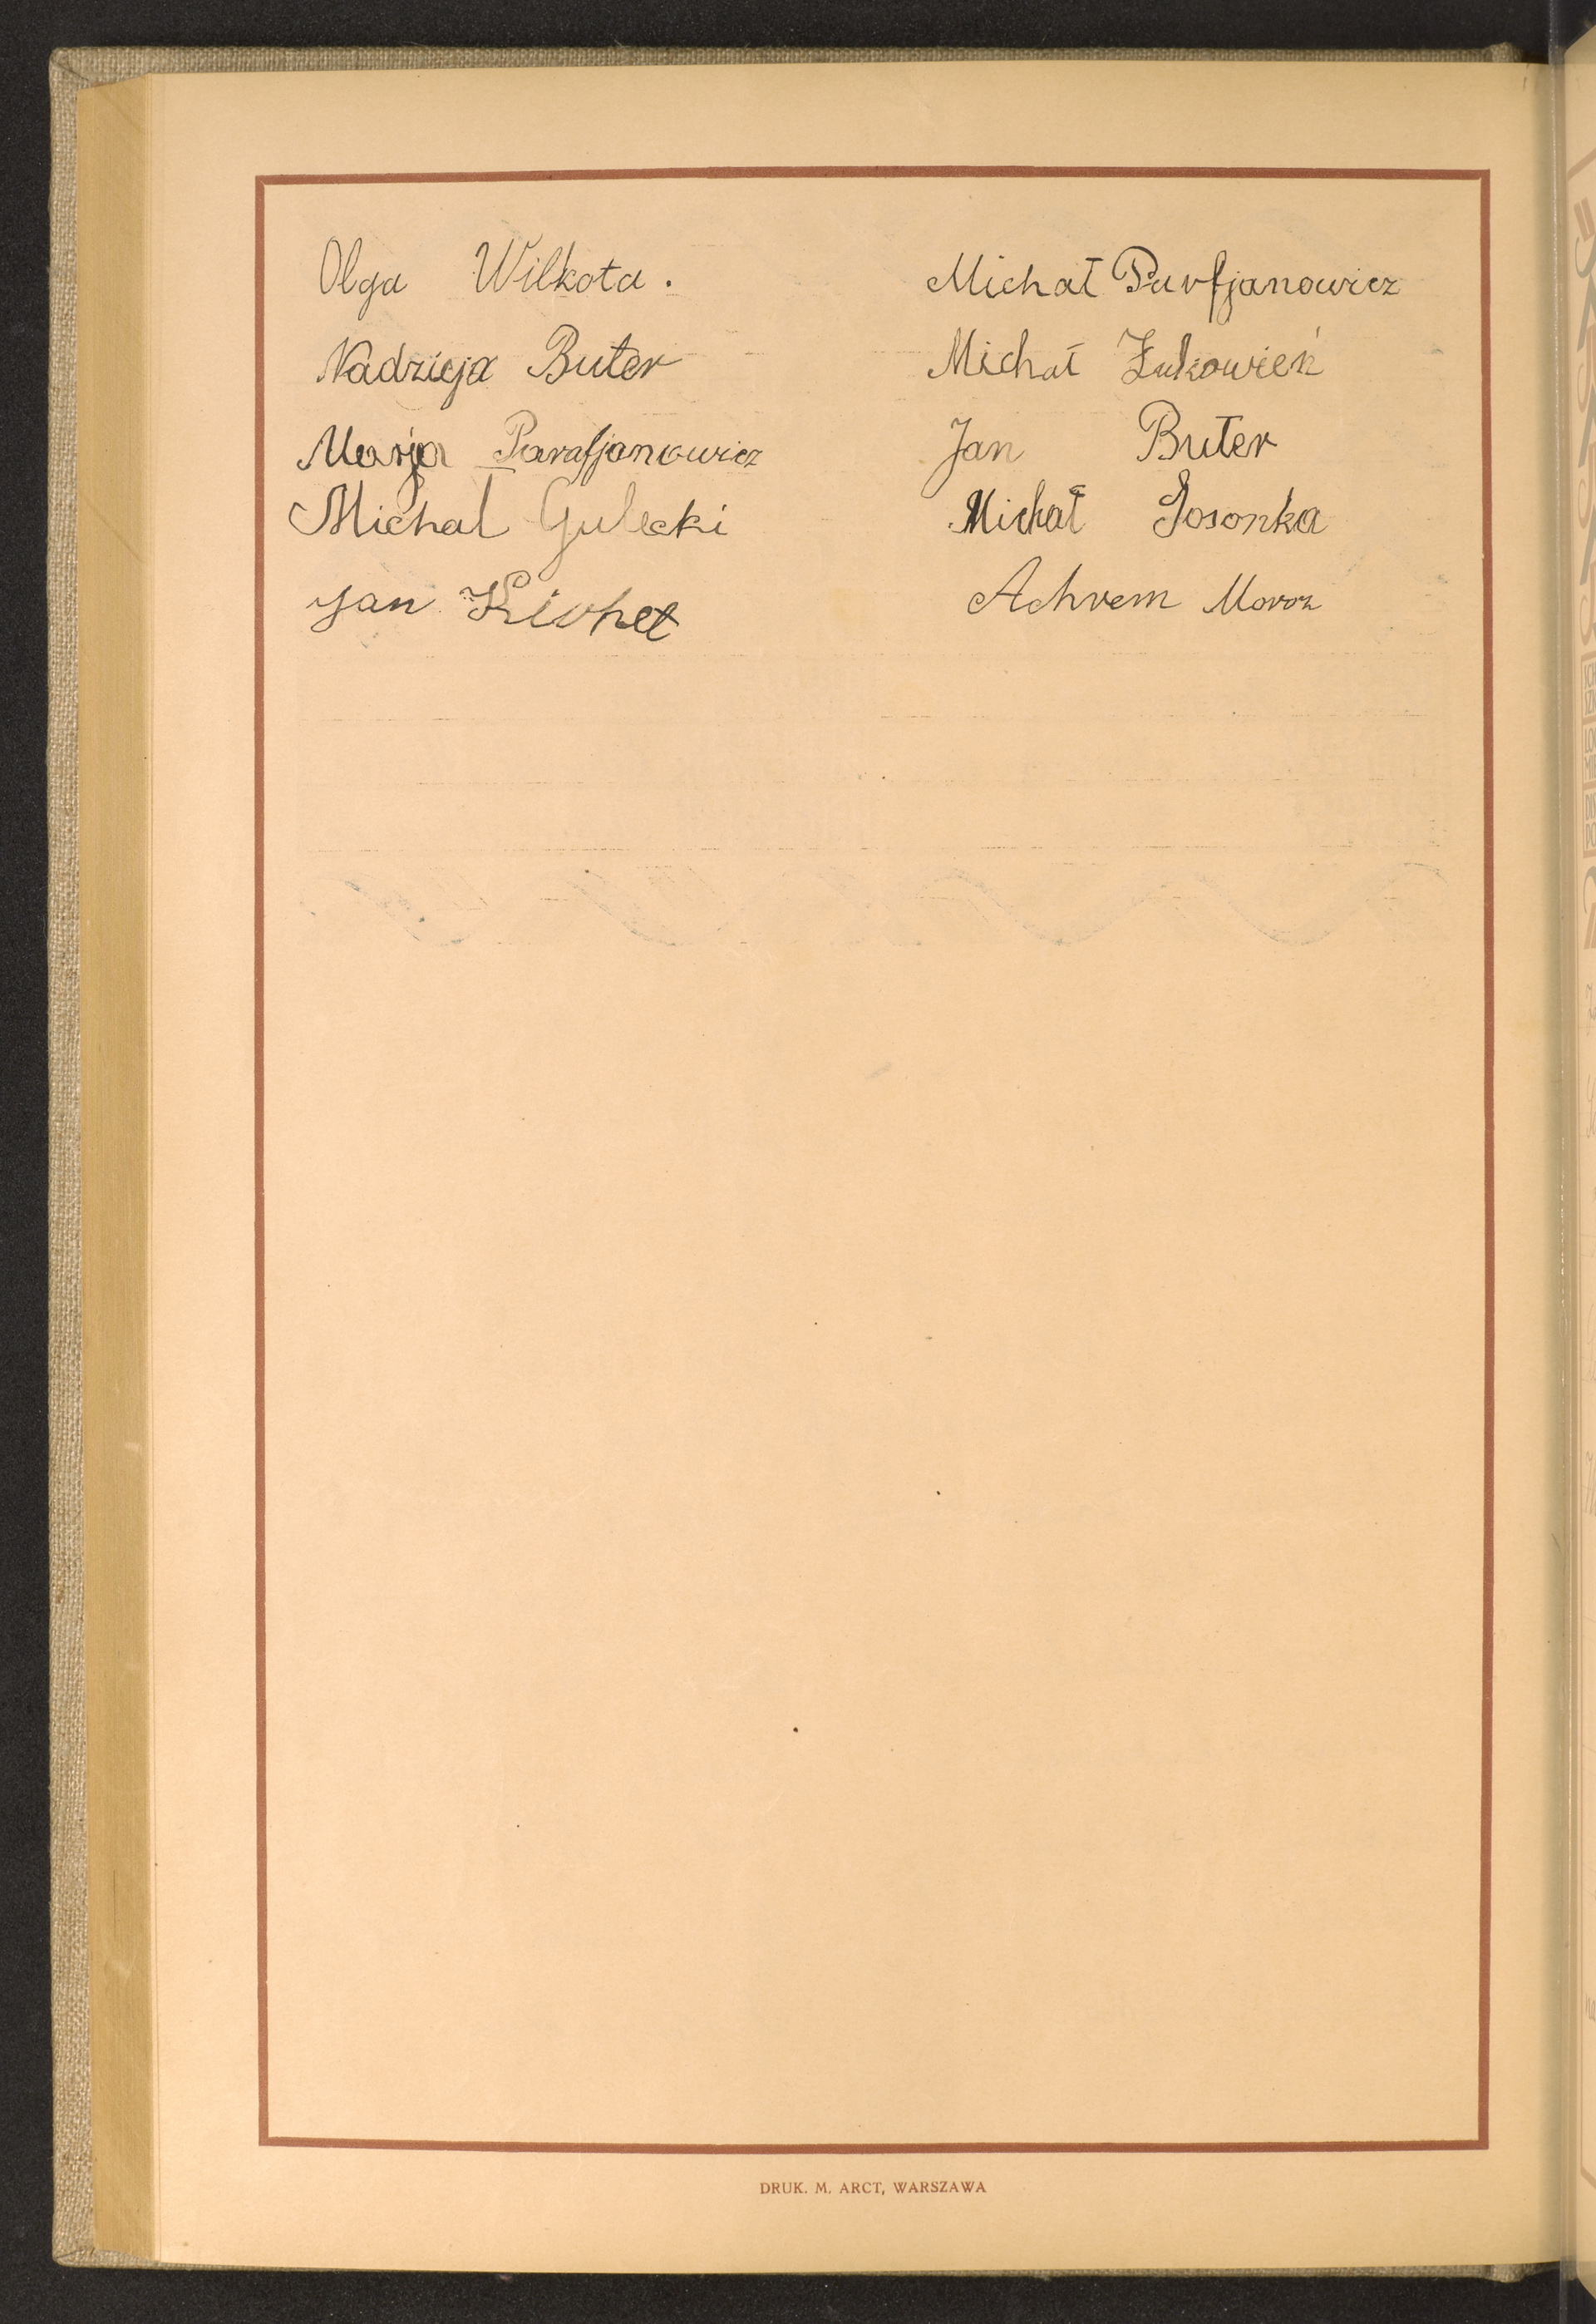 Olga Wilkota.
Nadzieja Buter
Marja Parafjanowicz
Michal Gulecki
Jan
Michał Parfjanowicz
Michał Żukowień
Jan Buter
Michał Sosonka
Achrem Moroz
DRUK. M. ARCT, WARSZAWA